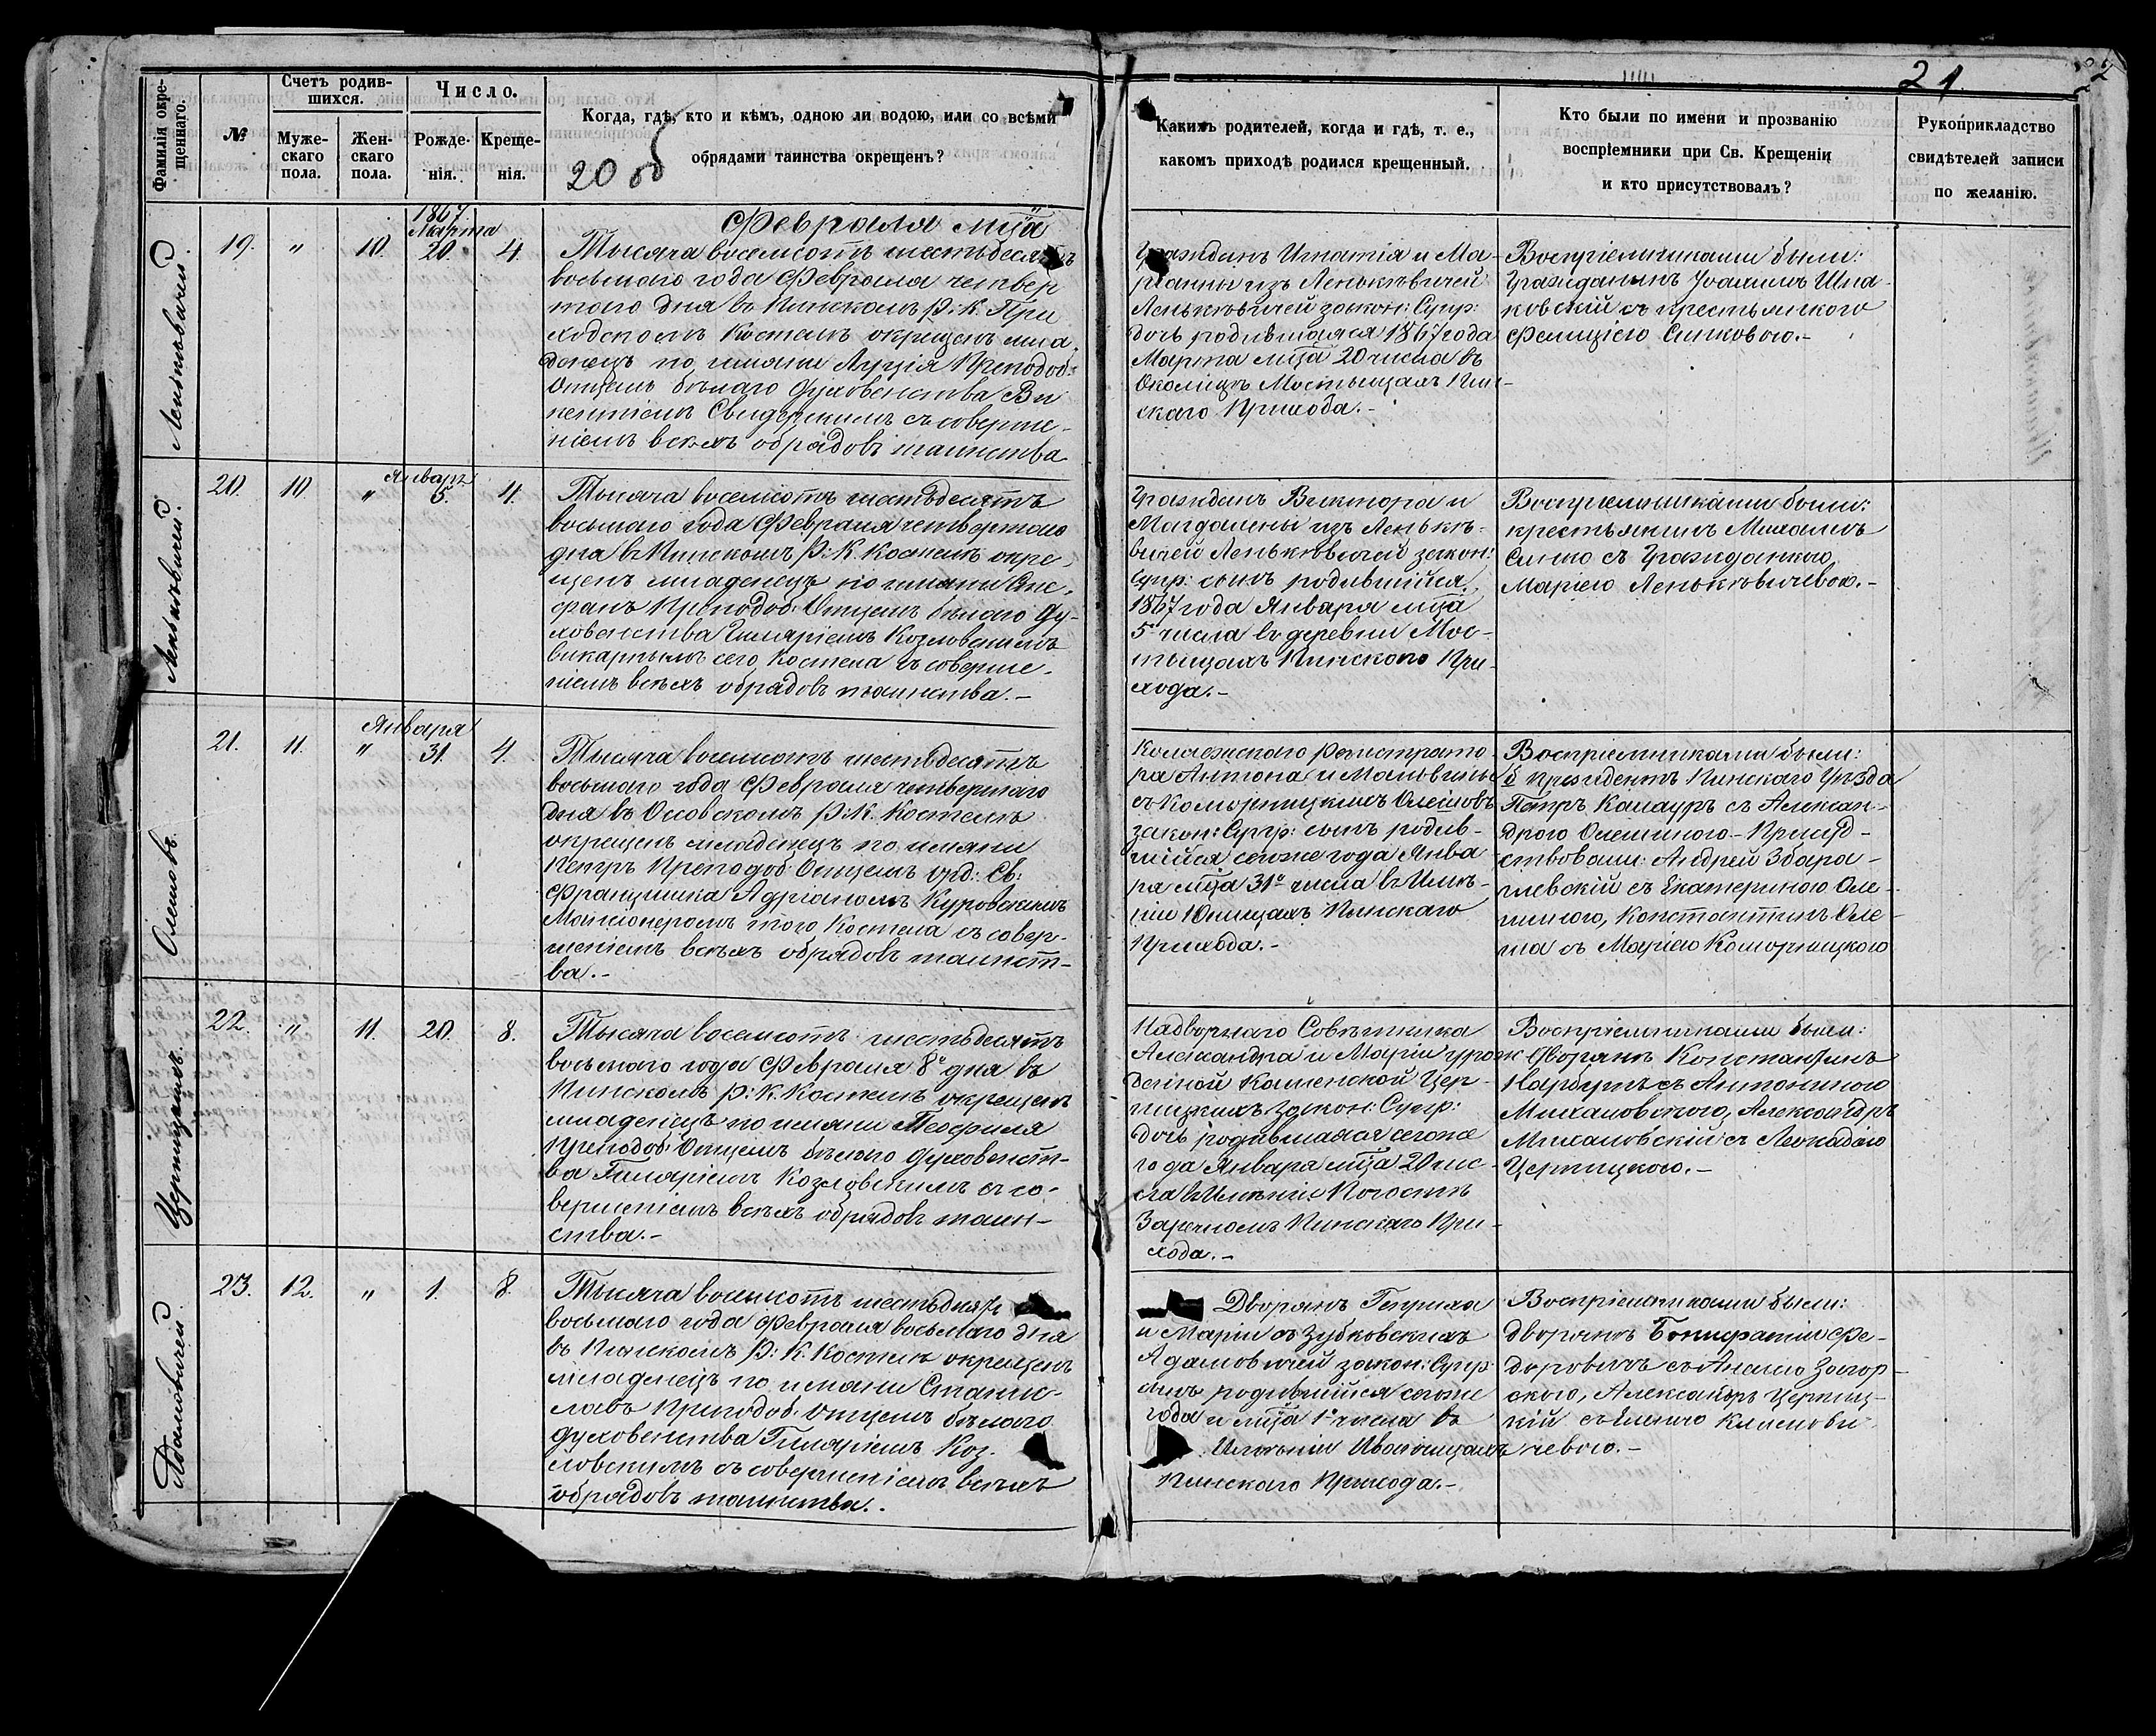 21
22
Фамилія окре-
щеннаго.
№
Счетъ родив-
шихся.
Муже-
скаго
пола.
Жен-
скаго
пола.
Число.
Рожде-
нія.
Креще-
нія.
Когда, гдѣ, кто и кѣмъ, одною ли водою, или со всѣми
обрядами таинства окрещенъ?
20 об
Какихъ родителей, когда и гдѣ, т. е.,
какомъ приходѣ родился крещенный.
Кто были по имени и прозванію
воспріемники при Св. Крещеніи
и кто присутствовалъ?
Рукоприкладство
свидѣтелей записи
по желанію.
Февраля мца
Ленькѣвичей
19.
"
10.
1867.
Марта
20.
4.
Тысяча восемсотъ шестьдесятъ
восьмаго года Февраля четвер
таго дня въ Пинскомъ Р: К. При
ходскомъ Костелѣ окрещенъ мла
денецъ по имяни Луція Преподоб:
Отцемъ бѣлаго Духовенства Ви
кентіемъ Свидерскимъ съ соверше-
ніемъ всѣхъ обрядовъ таинства
Гражданъ Игнатія и Ма-
ріанны изъ Ленькѣвичей
Ленькѣвичей закон: Супр:
дочь родившаяся 1867 года
Марта мца 20 числа въ
Околицѣ Мостыщахъ Пин-
скаго Прихода.-
Воспріемниками были:
Гражданинъ Іоахимъ Шпа-
ковскій съ крестьянкою
Фелиціею Сенковою.-
Ленькѣвичей.
20.
10
"
Январь
5.
4.
Тысяча восемсотъ шестьдесятъ
восьмаго года Февраля четвертаго
дня въ Пинскомъ Р: К. Костелѣ окре-
щенъ младенецъ по имяни Сте-
фанъ Преподоб: Отцемъ бѣлаго Ду-
ховенства Гиляріемъ Козловскимъ
Викарнымъ сего Костела съ соверше-
ніемъ всѣхъ обрядовъ таинства.-
Гражданъ Виктора и
Магдалены изъ Ленькѣ-
вичей Ленькѣвичей закон:
Супр: сынъ родившійся
1867 года Января мца
5 числа въ деревни Мос-
тыщахъ Пинскаго При-
хода.-
Воспріемниками были:
крестьянинъ Михаилъ
Сенко съ Гражданкою
Маріею Ленькѣвичевою.-
Олешовъ
21.
11.
"
Января
31.
4.
Тысяча восемсотъ шестьдесятъ
восьмаго года Февраля четвертаго
дня въ Осовскомъ Р: К. Костелѣ
окрещенъ младенецъ по имяни
Петръ Преподоб: Отцемъ орд: Св:
Францишка Адріаномъ Куровскимъ
Мансіонеромъ того Костела съ совер-
шеніемъ всѣхъ обрядовъ таинст-
ва.-
Колежскаго Регистрато-
ра Антона и Мальвины
съ Коморницкихъ Олешовъ
закон: Супр: сынъ родив-
шійся сегоже года Янва
ря мца 31º числа въ Имѣ-
ніи Юнищахъ Пинскаго
Прихода.-
Воспріемниками были:
б Президентъ Пинскаго Уѣзда
Петръ Калауръ съ Алексан-
дрою Олешиною - Присуд-
ствовали: Андрей Збара-
шевскій съ Екатериною Оле-
шиною, Константинъ Оле-
ша съ Маріею Коморницкою
Церпицкихъ.
22.
"
11.
20.
8.
Тысяча восемсотъ шестьдесятъ
восьмаго года Февраля 8º дня въ
Пинскомъ Р: К. Костелѣ окрещенъ
младенецъ по имяни Теофиля
Преподоб: Отцемъ бѣлаго Духовенст-
ва Гиляріемъ Козловскимъ съ со-
вершеніемъ всѣхъ обрядовъ таин-
ства.-
Надворнаго Совѣтника
Александра и Маріи урож-
денной Каменской Цер-
пицкихъ Закон: Супр:
дочь родившаяся сегоже
года Января мца 20 чис-
ла въ Имѣніи Погостѣ
Зарѣчномъ Пинскаго При-
хода.-
Воспріемниками были:
Дворянъ Константинъ
Нарбутъ съ Антониною
Михаловскою, Александръ
Михаловскій съ Леокадіею
Церпицкою.-
Адамовичей
23.
12.
"
1.
8.
Тысяча восемсотъ шестьдесять
восьмаго года Февраля восьмаго дня
въ Пинскомъ Р: К. Костелѣ окрещенъ
младенецъ по имяни Станис-
лавъ Преподоб: Отцемъ бѣлаго
духовенства Гиляріемъ Коз-
ловскимъ съ совершеніемъ всѣхъ
обрядовъ таинства.-
Дворянъ Генриха
и Маріи съ Зубковскихъ
Адамовичей закон: Супр
сынъ родившійся сегоже
года и мца 1º числа въ
Имѣніи Иванчицахъ
Пинскаго Прихода.-
Воспріемниками были:
дворянъ Бонифатій Фе-
доровичъ съ Анелею Загор-
скою, Александръ Церпиц-
кій съ Еленою Климови-
чевою.-